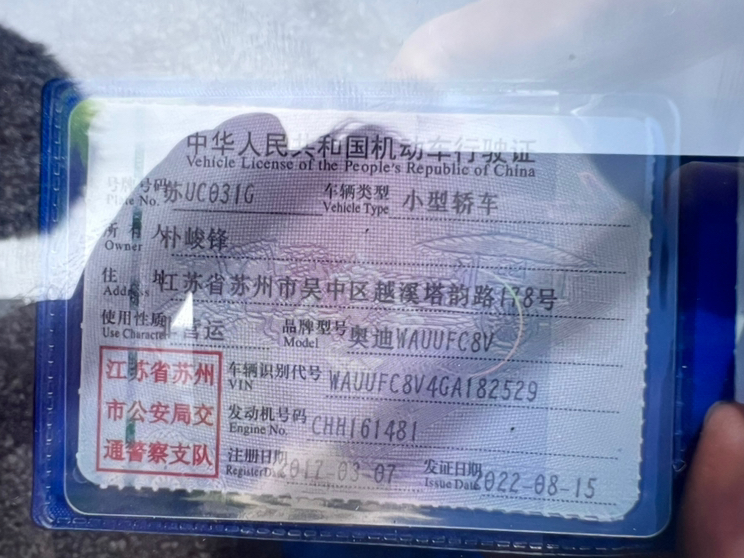 中华人民共和国机动车行驶证
Vehicle License of the People's Republic of China
号牌号码 苏UC031G 车辆类型 小型轿车
Plate No. Vehicle Type
所有人 朴峻锋
Owner
住 址 江苏省苏州市吴中区越溪塔韵路178号
Address
使用性质 营运 品牌型号 奥迪WAUUFC8V
Use Character Model
江苏省苏州 车辆识别代号 WAUUFC8V4GA182529
VIN
市公安局交 发动机号码 CHH161481
Engine No.
通警察支队 注册日期 2017-03-07 发证日期 2022-08-15
Register Date Issue Date